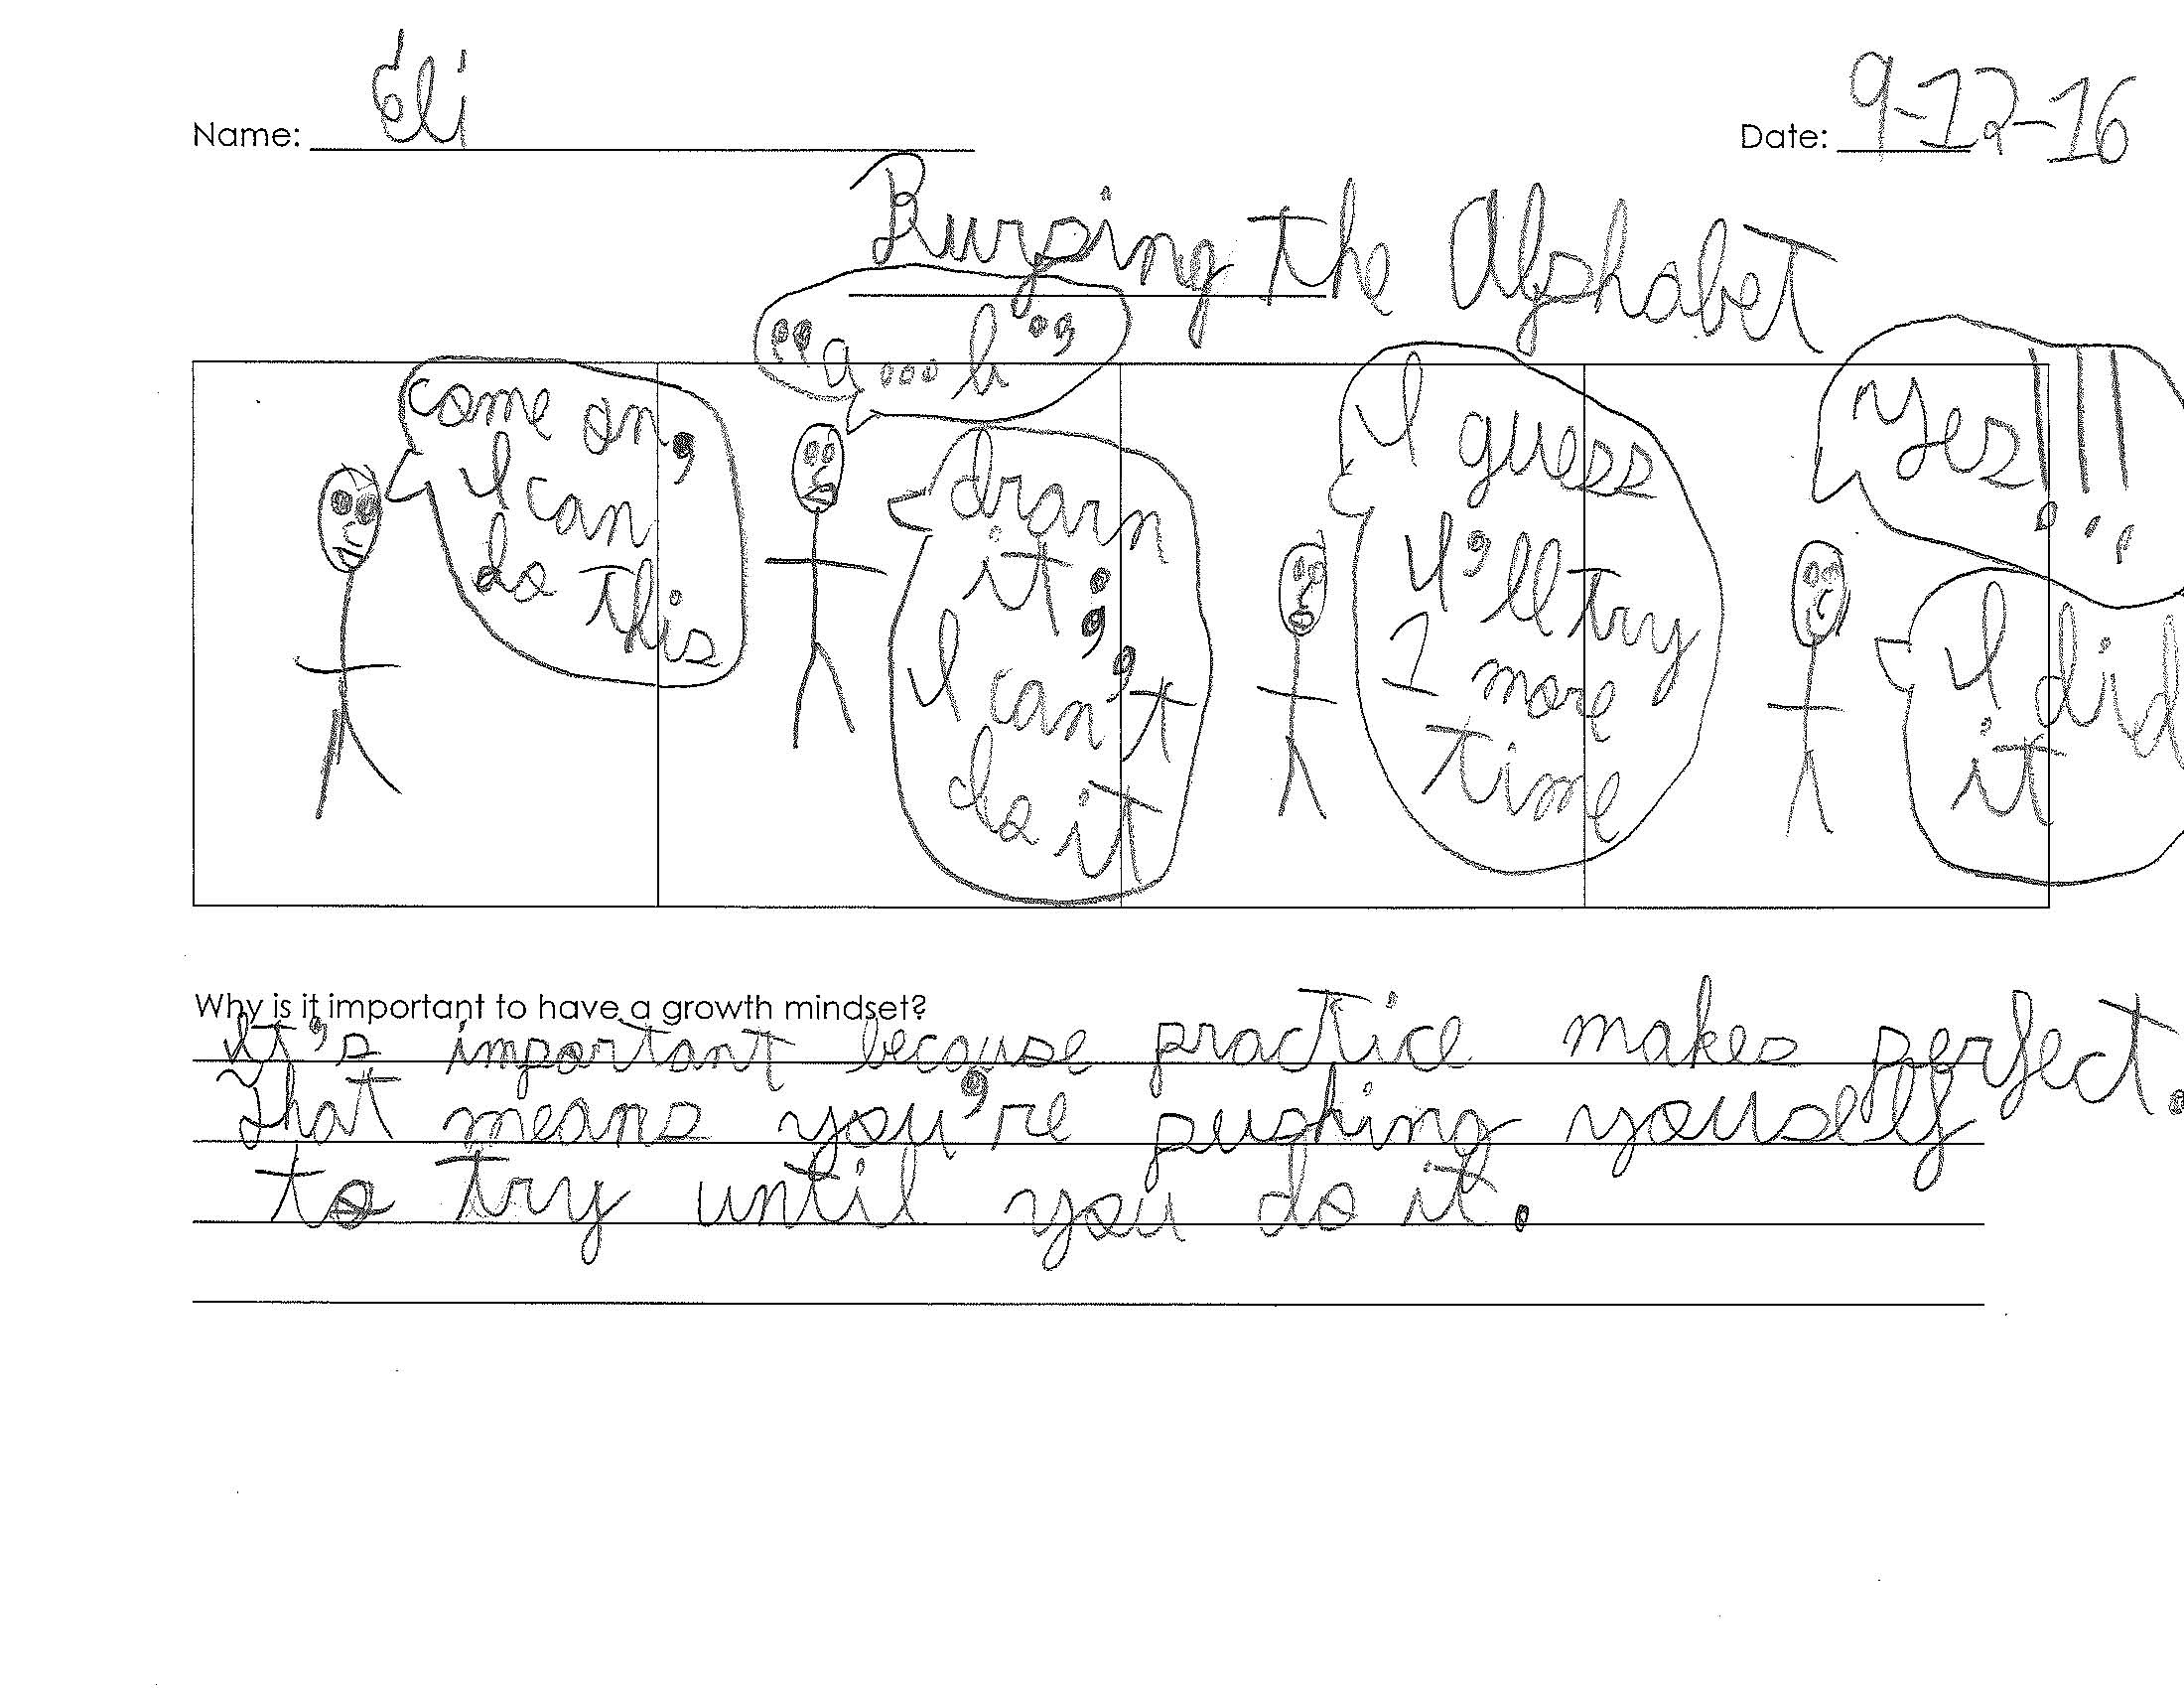 Name: Eli
Date: 9-12-16
Burping the Alphabet
come on,
I can
do this
"a...b"
drarn
it;
I can't
do it
I guess
I'll try
1 more
time
Yes!!!
I did
it
Why is it important to have a growth mindset?
It's important because practice makes perfect.
That means you're pushing youself
to try until you do it.